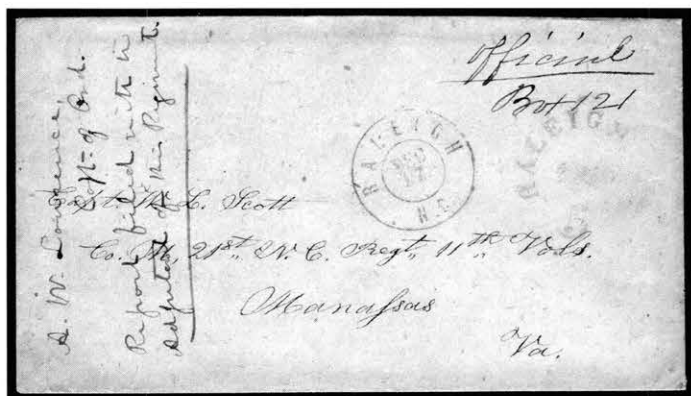 Official
Box 121
RALEIGH
N.C.
RALEIGH
Capt. W. L. Scott
Co. M, 21st N. C. Regt, 11th Vols.
Manassas
Va.
A. W. Lawrence,
Capt of Ord.
Report filed with
Adjutant of this Regiment.